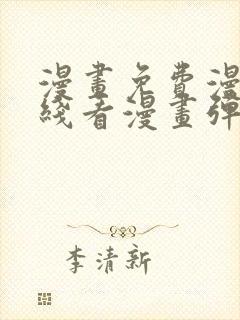 漫畫免費漫
綫看漫畫彈
李清新